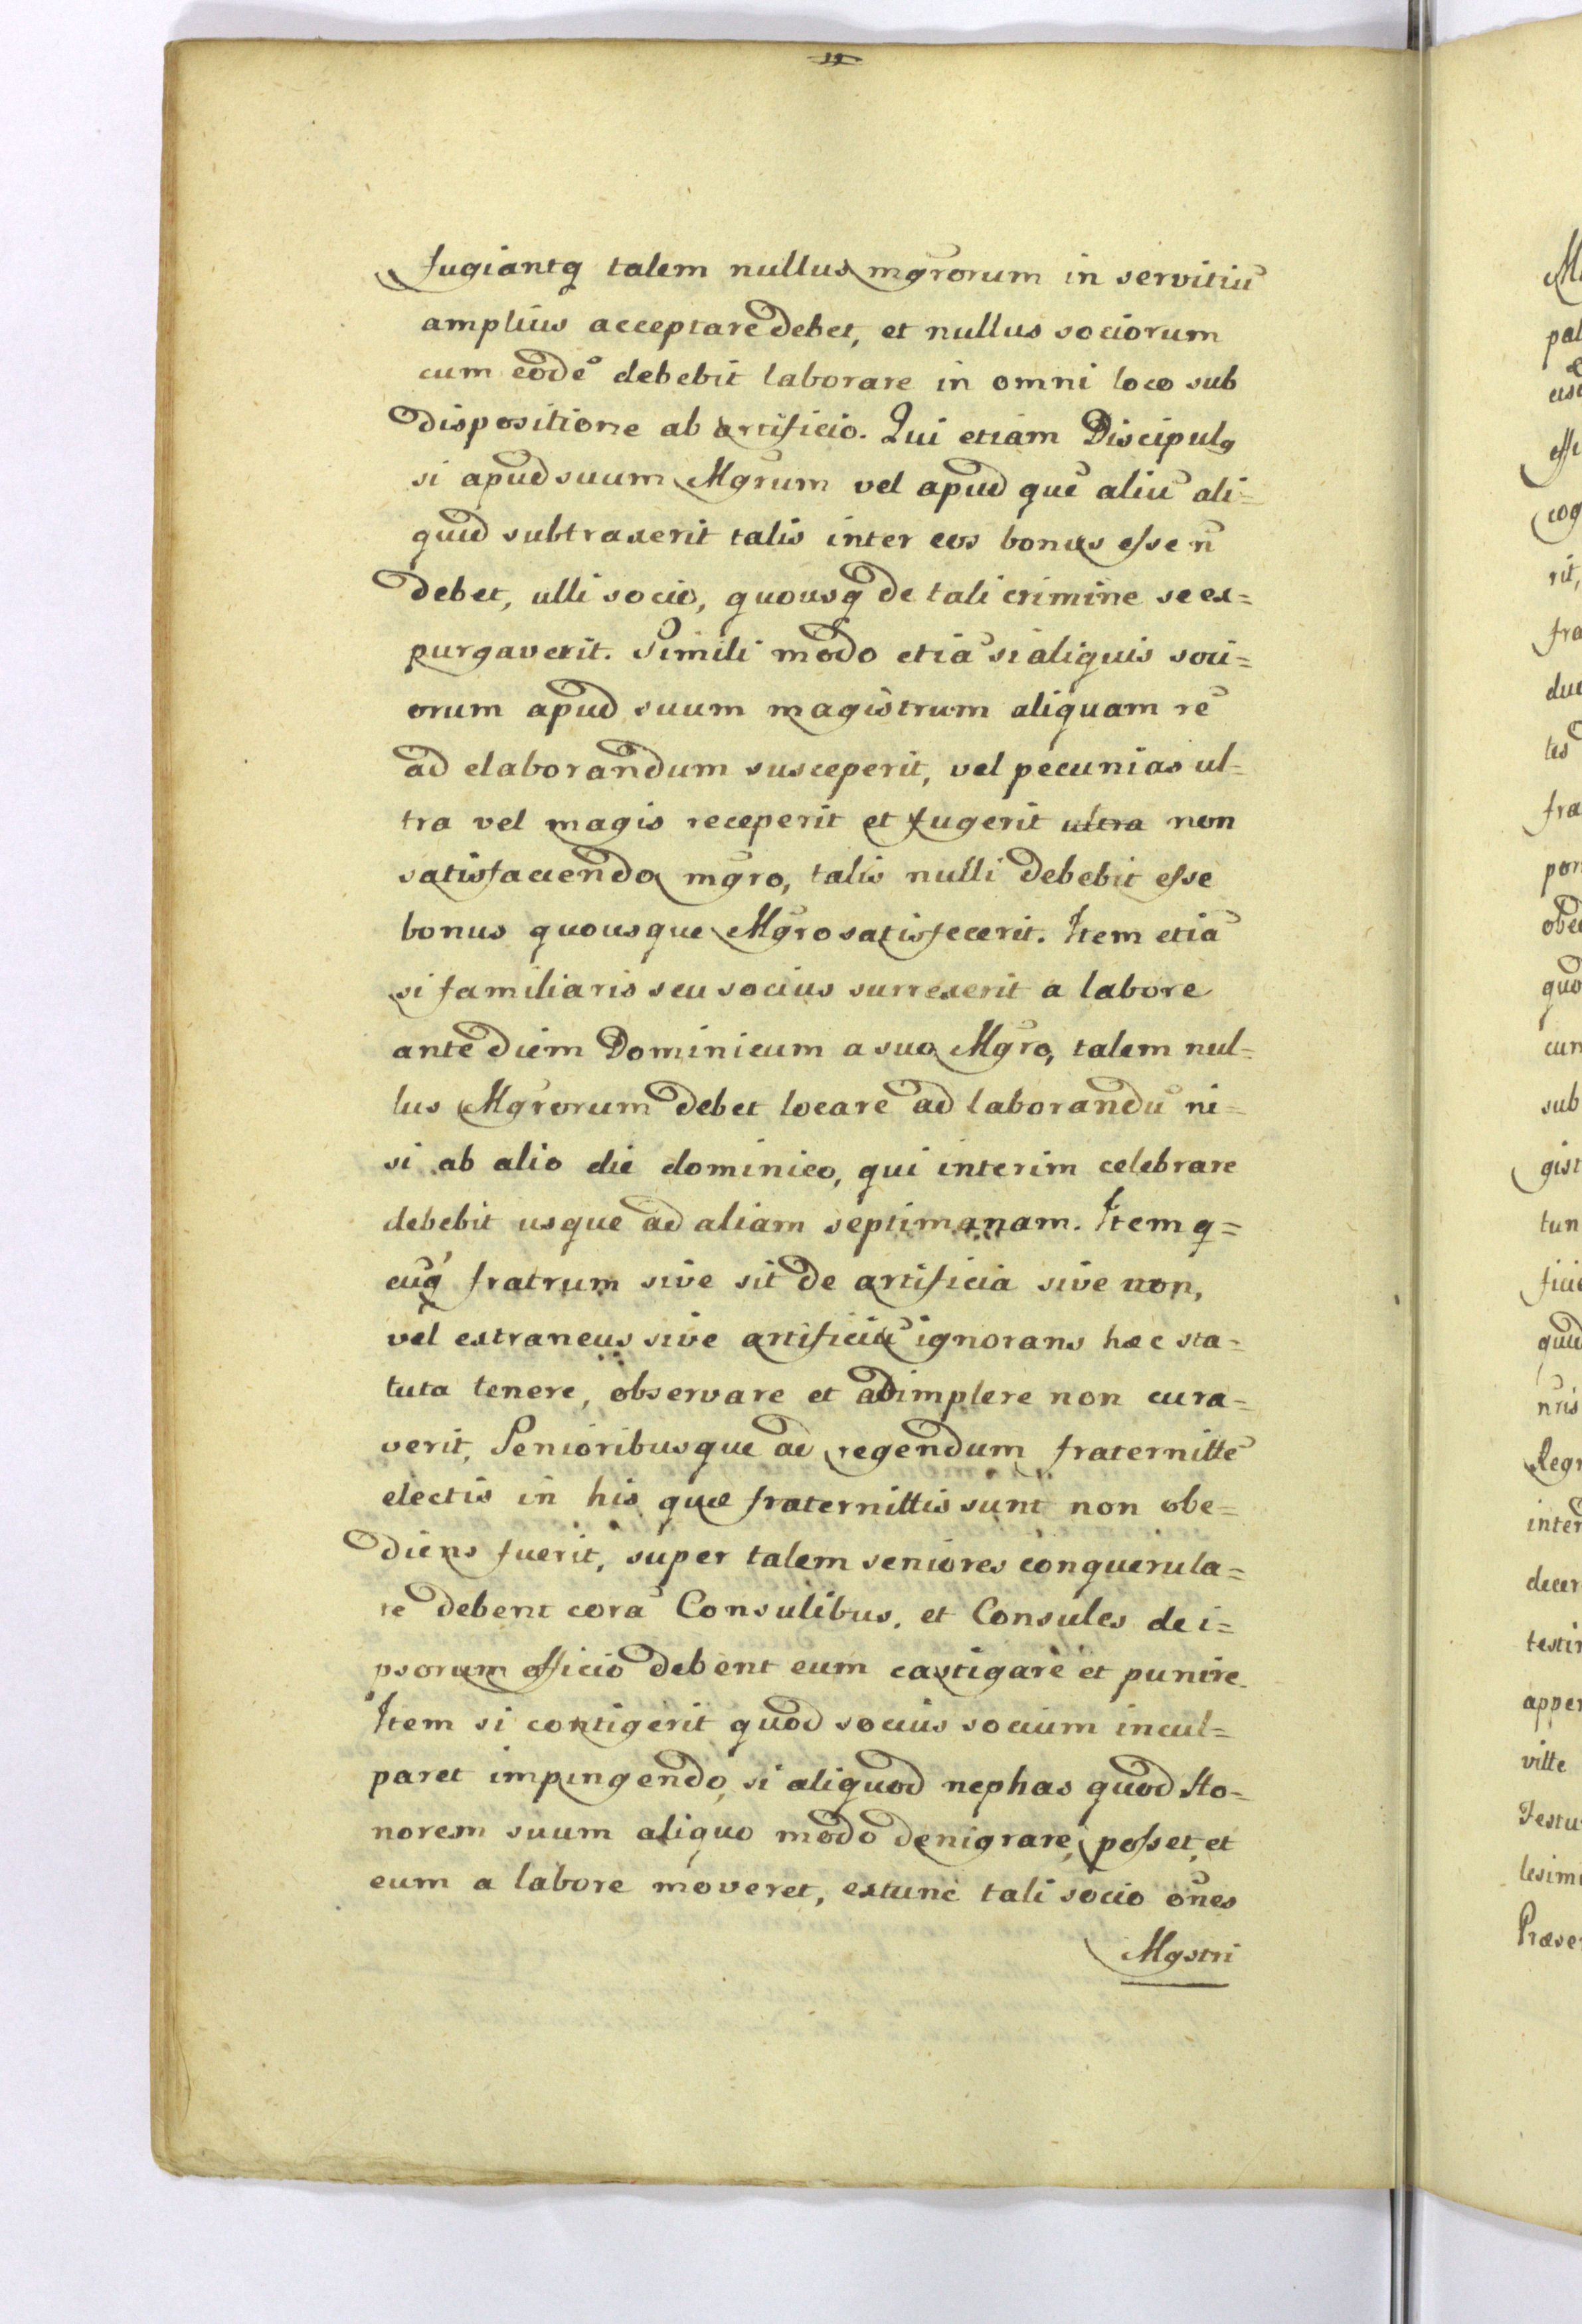 fugiantq talem nullus mgrorum in servitiũ
amplius acceptare debet, et nullus sociorum
cum eodẽ debebit laborare in omni loco sub
dispositione ab artificio. Qui etiam Discipulq
si apud suum Mgrum vel apud quẽ aliũ ali=
quid subtraxerit talis inter eos bonus esse ñ
debet, ulli socio, quousq de tali crimine se ex=
purgaverit. Simili modo etiã si aliquis soci=
orum apud suum magistrum aliquam rẽ
ad elaborandum susceperit, vel pecunias ul=
tra vel magis receperit et fugerit ultra non
satisfaciendo mgro, talis nulli debebit esse
bonus quousque Mgro satisfecerit. Item etiã
si familiaris seu socius surrexerit a labore
ante diem Dominicum a suo Mgro, talem nul=
lus Mgrorum debet locare ad laborandũ ni=
si ab alio die dominico, qui interim celebrare
debebit usque ad aliam septimanam. Item q=
cuq fratrum sive sit de artificia sive non,
vel extraneus sive artificiũ ignorans hæc sta=
tuta tenere, observare et adimplere non cura=
verit, Senioribusque ad regendum fraternittẽ
electis in his quæ fraternittis sunt non obe=
diens fuerit, super talem seniores conquerula=
re debent corã Consulibus, et Consules de i=
psorum officio debent eum castigare et punire.
Item si contigerit quod socius socium incul=
paret impingendo, si aliquod nephas quod Ho=
norem suum aliquo modo denigrare, posset, et
eum a labore moveret, extunc tali socio oñes
Mgstri